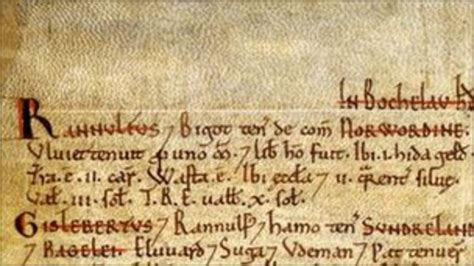 In Bochelau h̃
Rannulfus ⁊ Bigot ten̄ de com̄ Norwordine.
Vluiet tenuit ꝓ uno m̃. ⁊ lib̃ hõ fuit. Ibi. i. hida geld̃.
Tr̃a. e. ii. car̃. Wasta. e. Ibi æccła ⁊ ii. qr̃ent̃ siluæ.
Val̃. iii. sol̃. T.R.E. ualb̃. x. sol̃.
Gislebertus ⁊ Rannulf̃ ⁊ hamo ten̄ Sundreland
⁊ Bagelei. Eluuard ⁊ Suga ⁊ Udeman ⁊ Pat tenuer̃